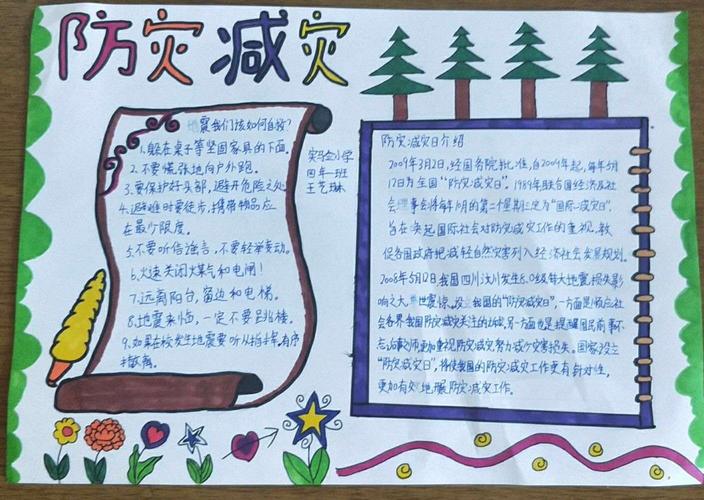 防灾减灾
地震我们该如何自救?
1.躲在桌子等坚固家具的下面。
2.不要慌张地向户外跑。
3.要保护好头部,避开危险之处
4.避难时要徒步,携带物品应
在最少限度。
5.不要听信谣言,不要轻举妄动。
6.火速关闭煤气和电闸!
7.远离阳台,窗边和电梯。
8.地震来临,一定不要去跳楼。
9.如果在校发生地震要听从指挥,有序
撤离。
实马仝小学
四年一班
王艺琳
防灾减灾日介绍
2009年3月2日,经国务院批准,自2009年起,每年5月
12日为全国“防灾减灾日”。1989年联合国经济及社
会理事会将每年10月的第二个星期三定为“国际减灾日”。
旨在唤起国际社会对防灾减灾工作的重视,敦
促各国政府把减轻自然灾害列入经济社会发展规划。
2008年5月12日,我国四川汶川发生8.0级特大地震,损失影
响之大,举世震惊。设立我国的“防灾减灾日”,一方面是顺应社
会各界我国防灾减灾关注的诉求,另一方面也是提醒国民前事不
忘,后事之师,更加重视防灾减灾,努力减少灾害损失。国家设立
“防灾减灾日”,将使我国的防灾减灾工作更有针对性,
更加有效地开展防灾减灾工作。